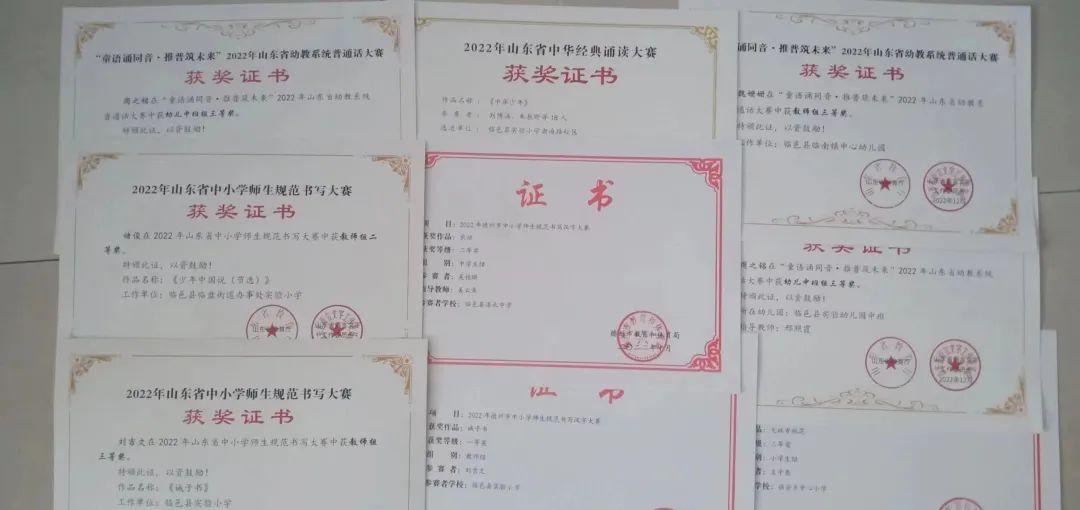 “童语诵同音·推普筑未来”2022年山东省幼教系统普通话大赛
获奖证书
周之铭在“童语诵同音·推普筑未来”2022年山东省幼教系统
普通话大赛中获幼儿中班组三等奖。
特颁此证,以资鼓励!
2022年山东省中华经典诵读大赛
获奖证书
作品名称:《中华少年》
参赛者:
选送单位:临邑县实验小学
诵同音·推普筑未来”2022年山东省幼教系统普通话大赛
获奖证书
在“童语诵同音·推普筑未来”2022年山东省幼教系
通话大赛中获教师组三等奖。
特颁此证,以资鼓励!
工作单位:临邑县临南镇中心幼儿园
2022年12月
2022年山东省中小学师生规范书写大赛
获奖证书
俊在2022年山东省中小学师生规范书写大赛中获教师组二
等奖。
特颁此证,以资鼓励!
作品名称:《少年中国说(节选)》
工作单位:临邑县临盘街道办事处实验小学
证 书
项 目:2022年德州市中小学师生规范书写汉字大赛
获奖作品:
获奖等级:二等奖
组 别:中学生组
参 赛 者:
指导教师:
参赛者学校:临邑县
德州市教育和体育局
获奖证书
周之铭在“童语诵同音·推普筑未来”2022年山东省幼教系统
话大赛中获幼儿中班组三等奖。
特颁此证,以资鼓励!
所在幼儿园:临邑县实验幼儿园中班
指导教师:郑照霞
2022年12月
2022年山东省中小学师生规范书写大赛
获奖证书
刘吉文在2022年山东省中小学师生规范书写大赛中获教师组
三等奖。
特颁此证,以资鼓励!
作品名称:《诫子书》
工作单位:临邑县实验小学
证 书
项 目:2022年德州市中小学师生规范书写汉字大赛
获奖作品:诫子书
获奖等级:一等奖
组 别:教师组
参 赛 者:刘吉文
参赛者学校:临邑县实验小学
品:
级:二等奖
别:小学生组
者:
学校:临邑县中心小学